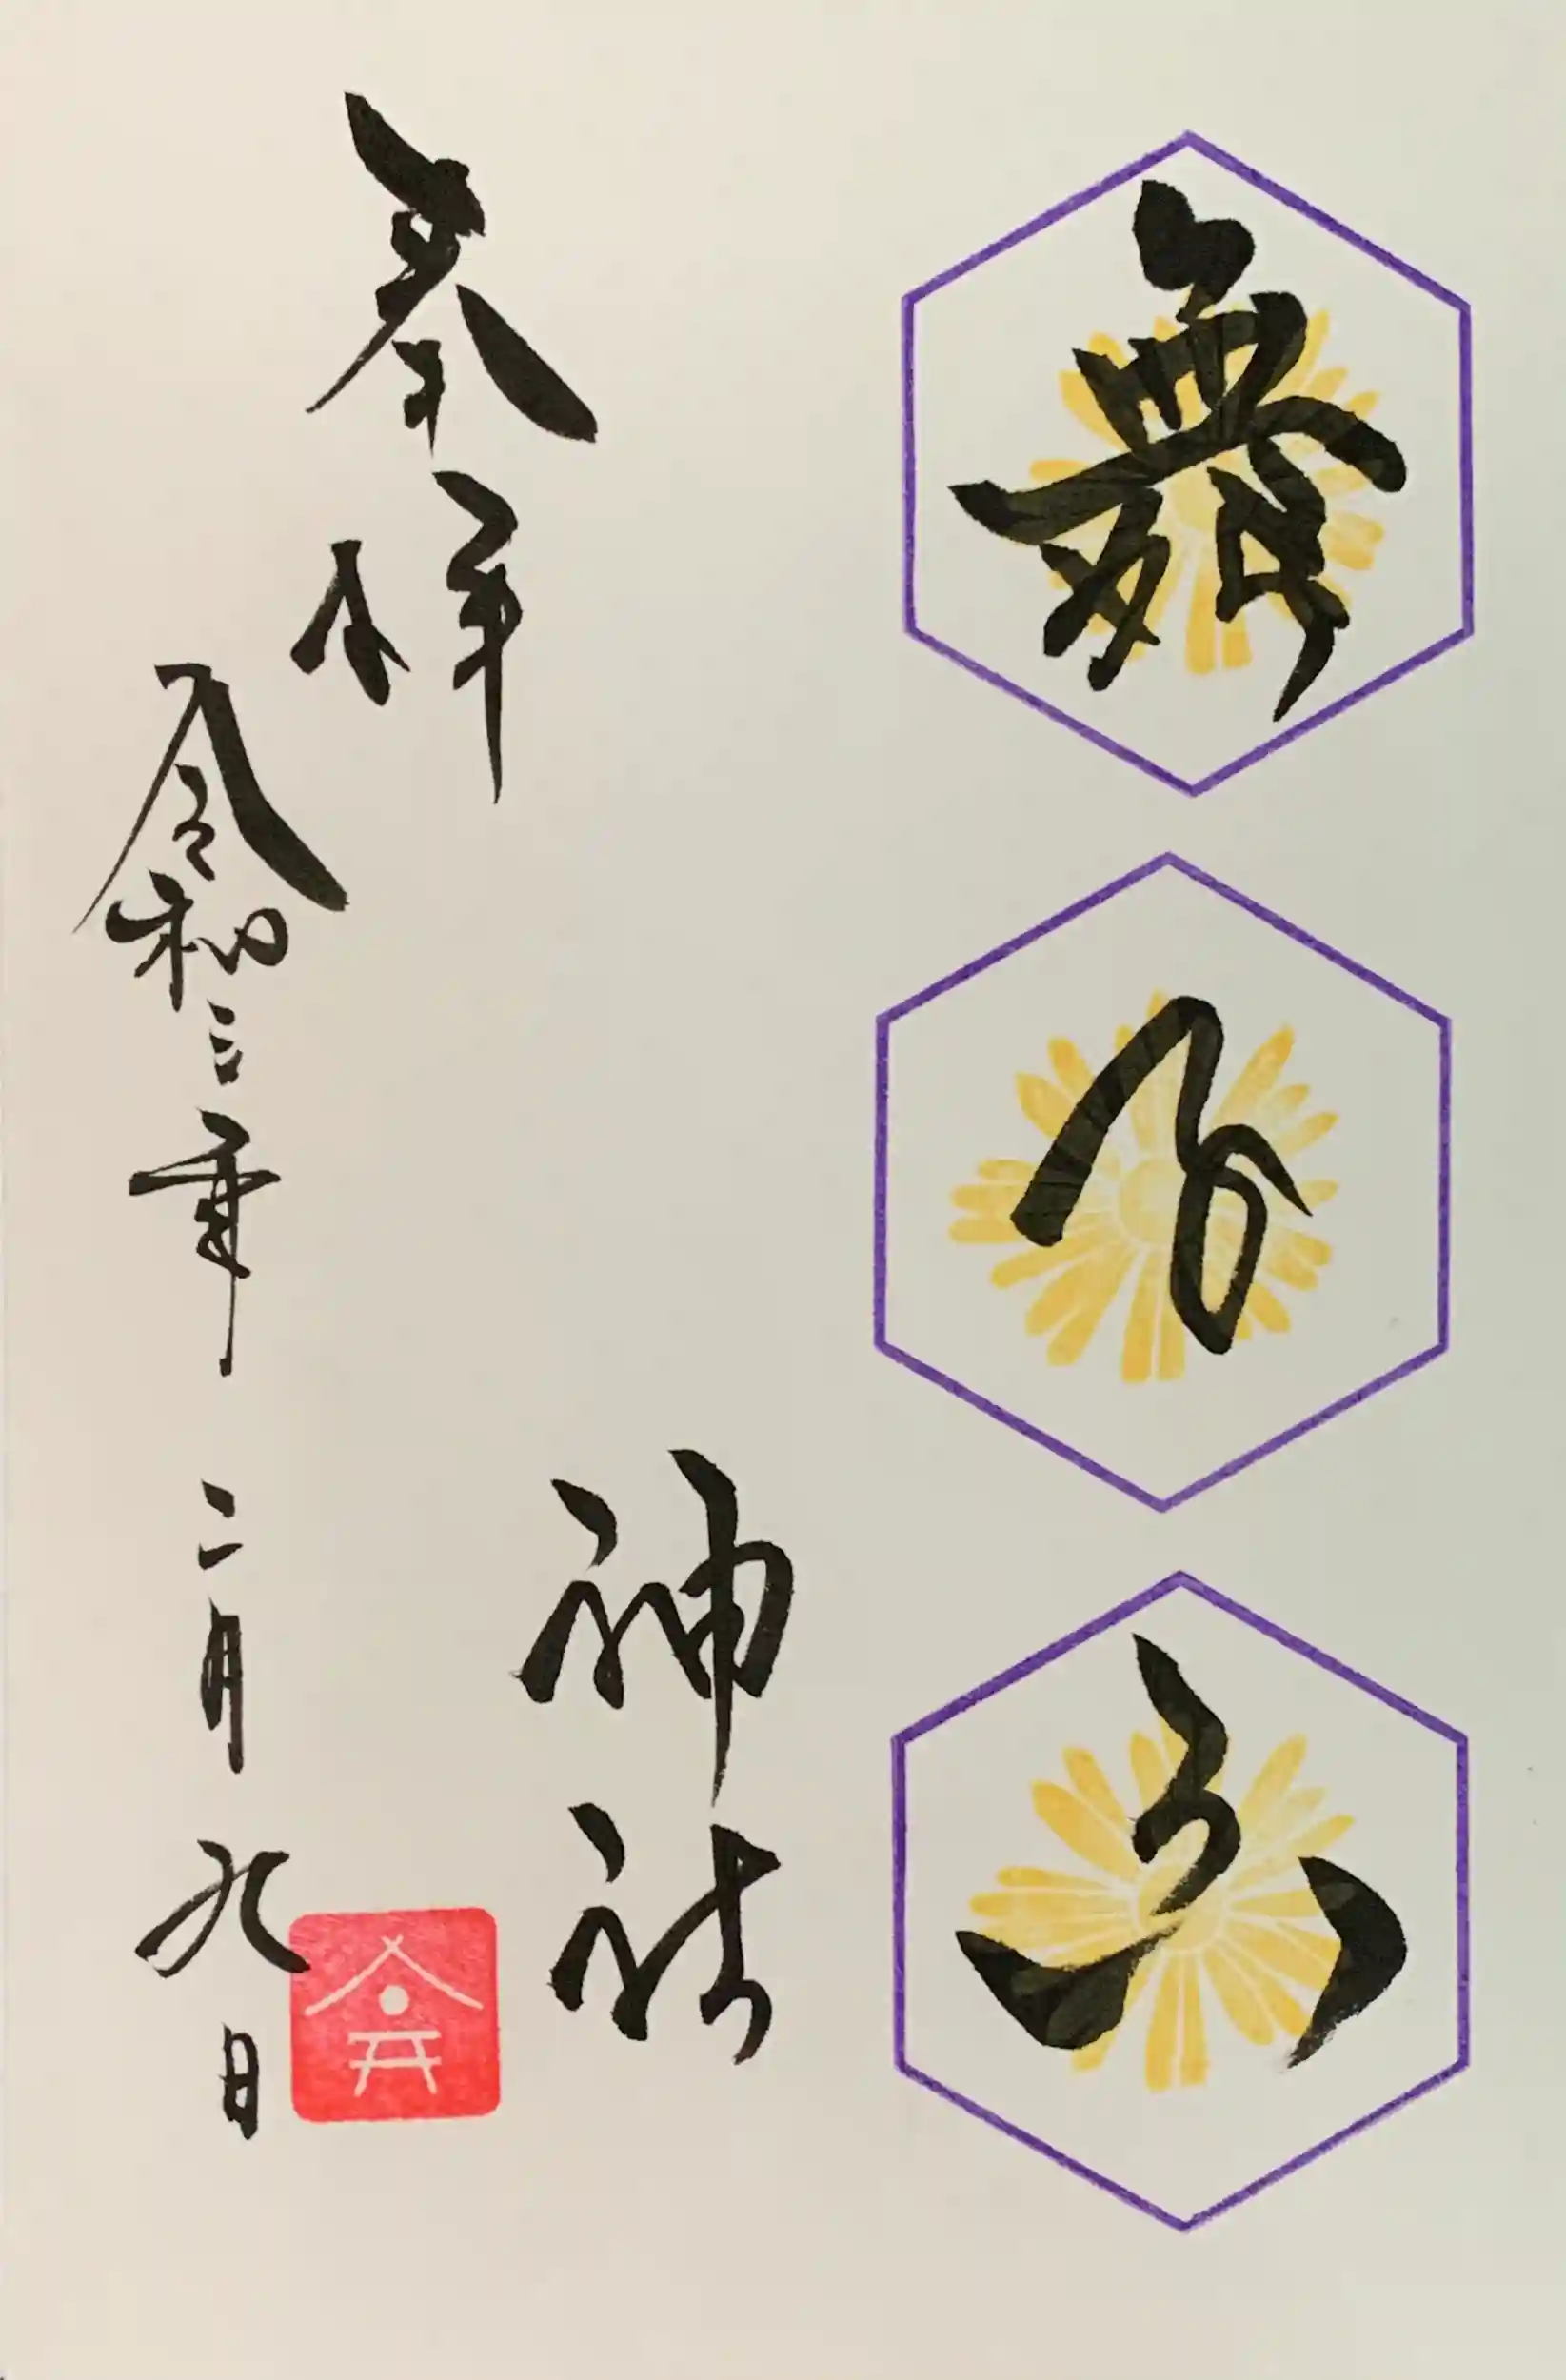 舞分六
神社
奉拝
令和三年二月九日